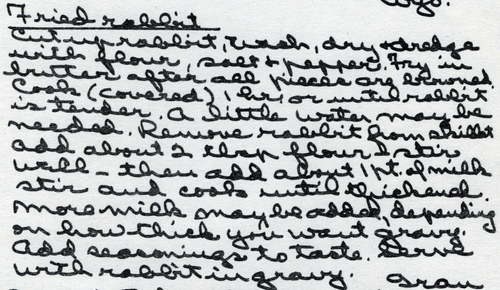 Fried rabbit
Cut up rabbit, wash, dry & dredge
with flour, salt & pepper. Fry in
butter after all pieces are browned.
Cook (covered) 1 hr. or until rabbit
is tender. A little water may be
needed. Remove rabbit from skillet
add about 2 tbsp flour & stir
well - then add about 1 pt. of milk
stir and cook until thickened.
More milk may be added, depending
on how thick you want gravy.
Add seasonings to taste. Serve
with rabbit in gravy. Gran